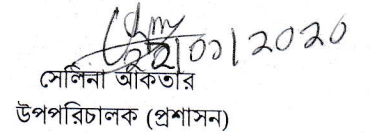 ২২/০১/2020
সেলিনা আকতার
উপপরিচালক (প্রশাসন)